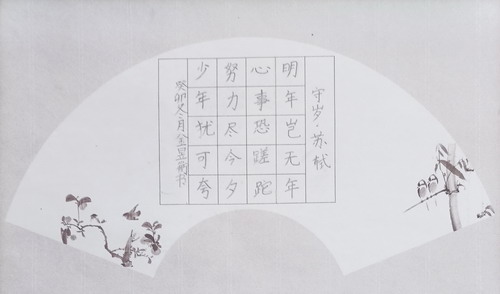 守岁·苏轼
明年岂无年
心事恐蹉跎
努力尽今夕
少年犹可夸
癸卯冬月金书